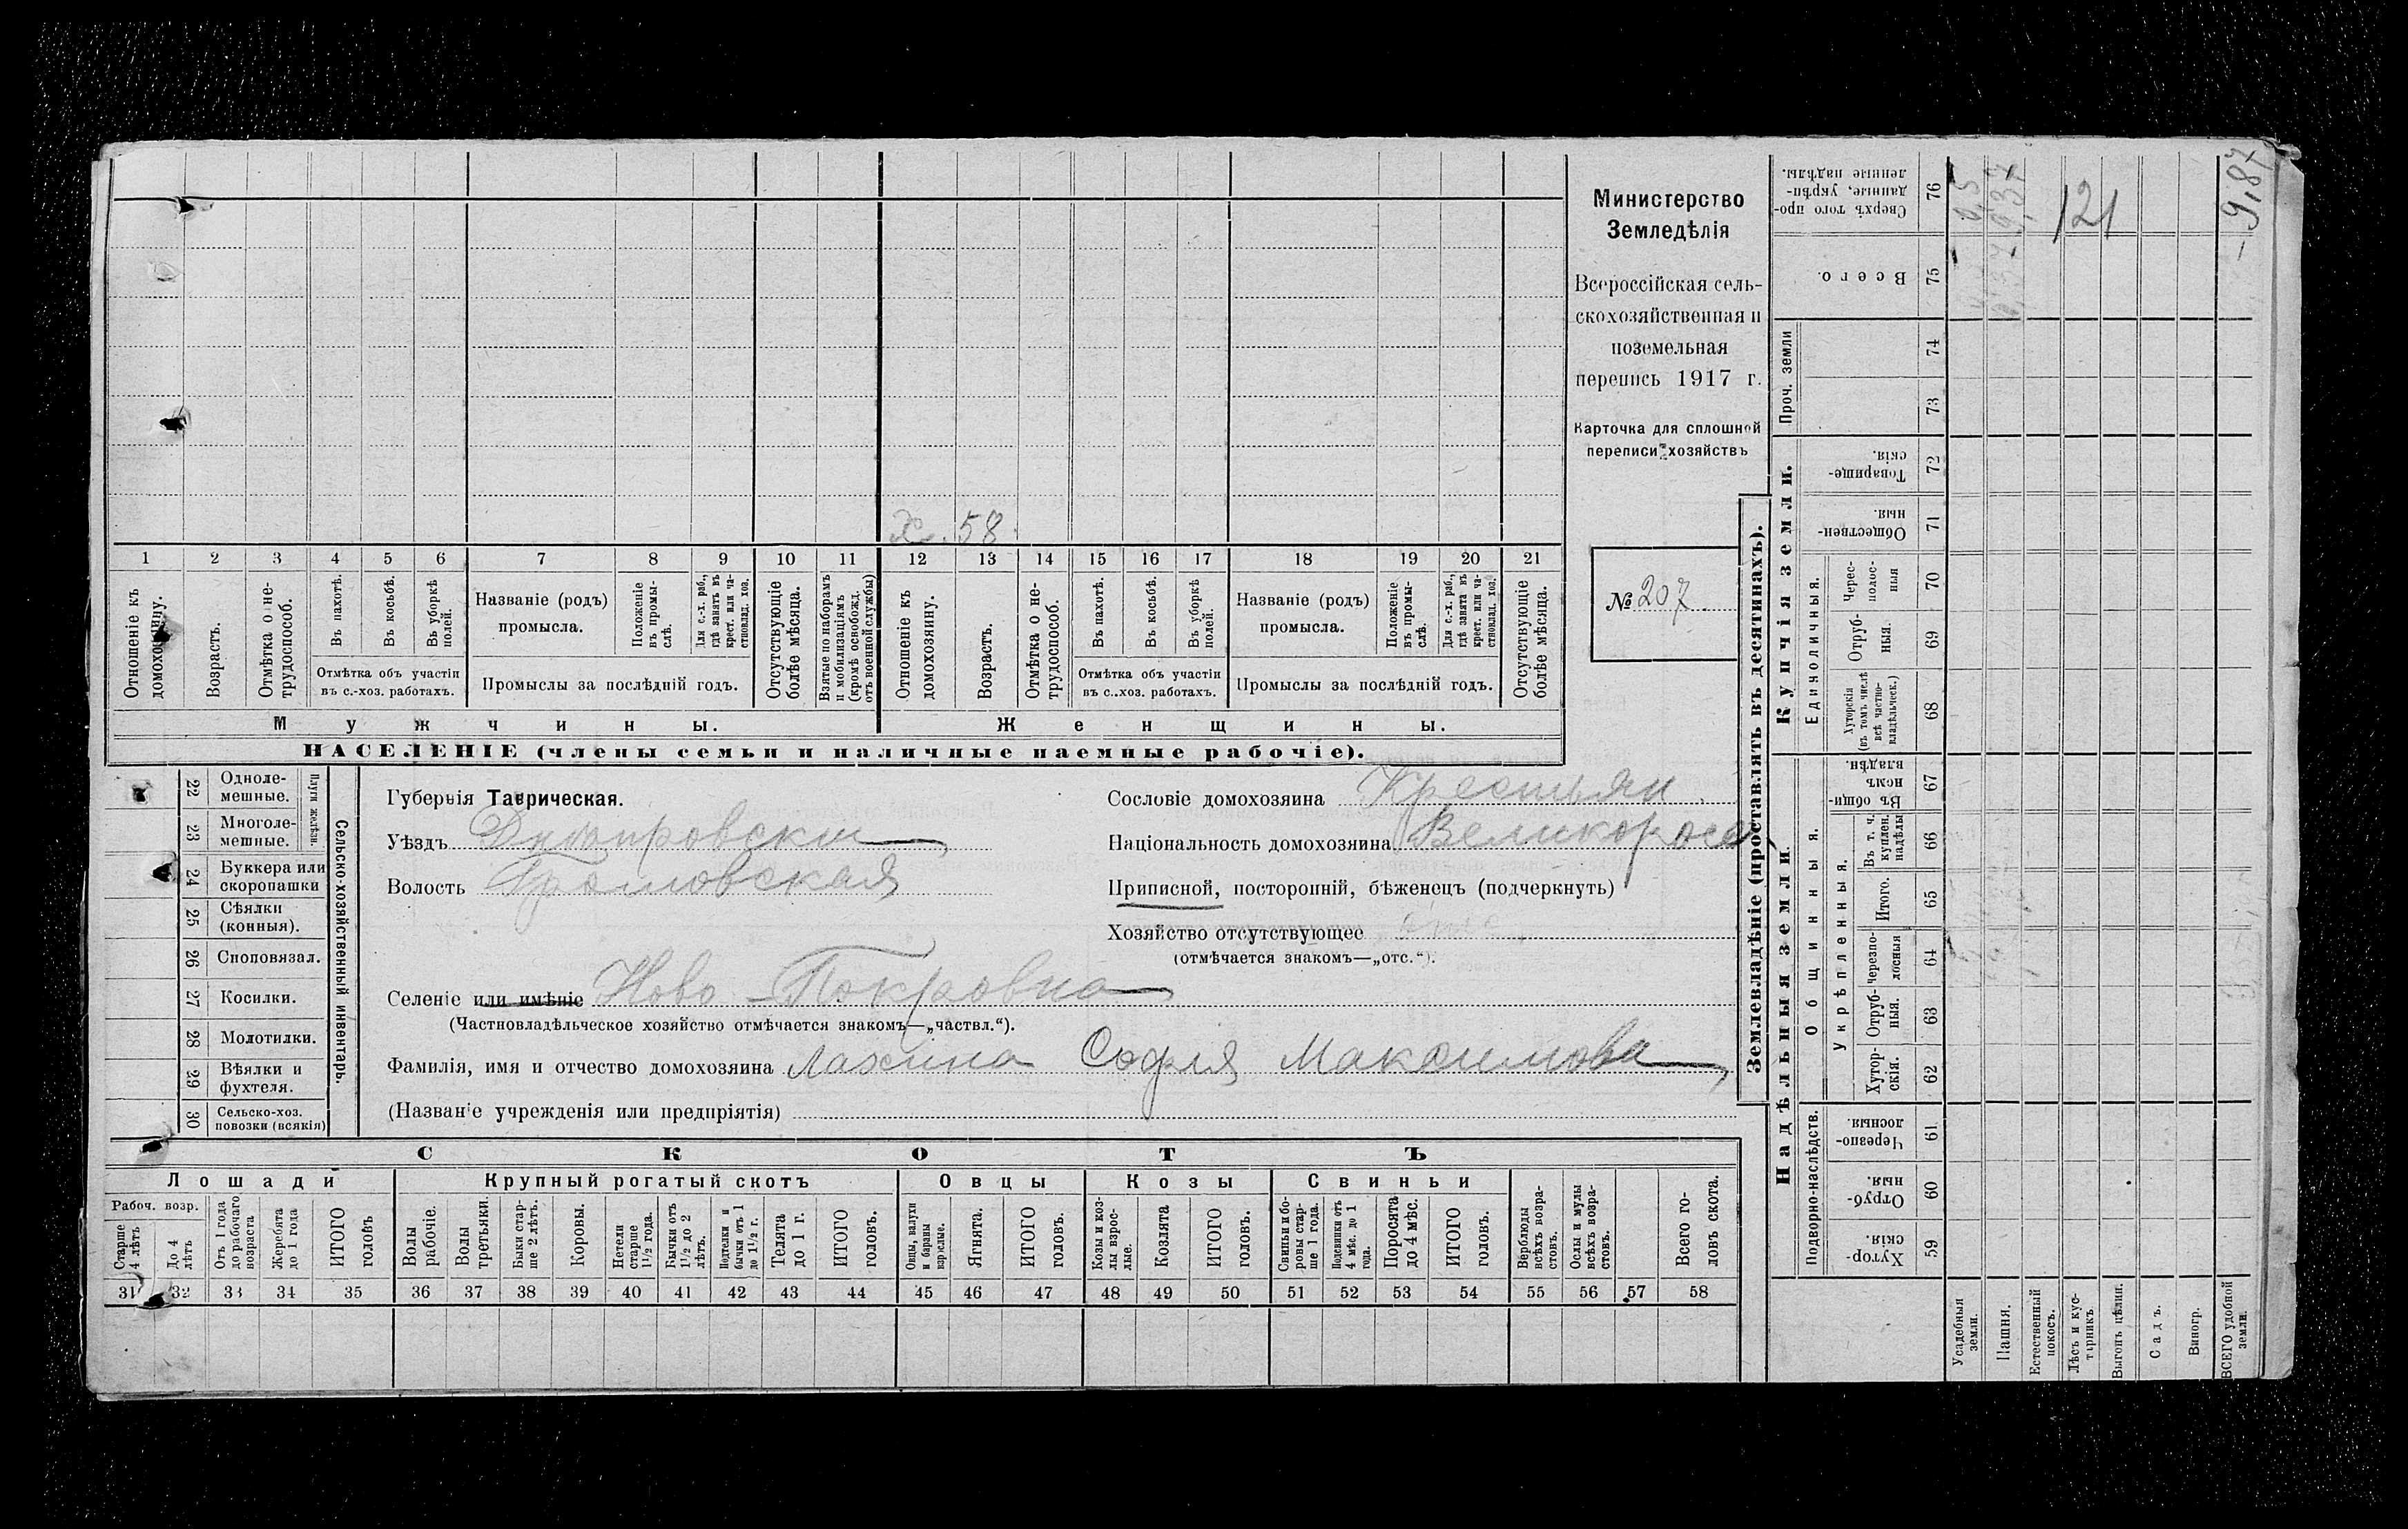 Министерство
Земледѣлія
Всероссійская сель-
скохозяйственная и
поземельная
перепись 1917 г.
Карточка для сплошной
переписи хозяйствъ
№ 207
х. 58
1 2 3 4 5 6 7 8 9 10 11 12 13 14 15 16 17 18 19 20 21
Отношеніе къ домохозяину.
Возрастъ.
Отмѣтка о не-трудоспособ.
Въ пахотѣ.
Въ косьбѣ.
Въ уборкѣ полей.
Отмѣтка объ участіи
въ с.-хоз. работахъ.
Названіе (родъ)
промысла.
Положеніе въ промы-слѣ.
Для с.-х. раб., гдѣ занятъ въ крест. или ча-стновлад. хоз.
Промыслы за послѣдній годъ.
Отсутствующіе болѣе мѣсяца.
Взятые по наборамъ и мобилизаціямъ (кромѣ освобожд. отъ военной службы)
Отношеніе къ домохозяину.
Возрастъ.
Отмѣтка о не-трудоспособ.
Въ пахотѣ.
Въ косьбѣ.
Въ уборкѣ полей.
Отмѣтка объ участіи
въ с..хоз. работахъ.
Названіе (родъ)
промысла.
Положеніе въ промы-слѣ.
Для с.-х. раб., гдѣ занята въ крест. или ча-стновлад. хоз.
Промыслы за послѣдній годъ.
Отсутствующіе болѣе мѣсяца.
Мужчины.
Женщины.
НАСЕЛЕНІЕ (члены семьи и наличные наемные рабочіе).
Сельско-хозяйственный инвентарь.
Плуги желѣзн.
22 Одноле-мешные.
23 Многоле-мешные.
24 Буккера или скоропашки
25 Сѣялки (конныя).
26 Сноповязал.
27 Косилки.
28 Молотилки.
29 Вѣялки и фухтеля.
30 Сельско-хоз. повозки (всякія)
Губернія Таврическая.
Уѣздъ Днѣпровскій
Волость Громовская
Селеніе или имѣніе Ново-Покровка
(Частновладѣльческое хозяйство отмѣчается знакомъ—„частвл.“).
Фамилія, имя и отчество домохозяина Лахина Софія Максимова
(Названіе учрежденія или предпріятія)
Сословіе домохозяина Крестьян.
Національность домохозяина Великоросс
Приписной, посторонній, бѣженецъ (подчеркнуть)
Хозяйство отсутствующее отс
(отмѣчается знакомъ—„отс.“).
СКОТЪ
Лошади
Крупный рогатый скотъ
Овцы
Козы
Свиньи
Рабоч. возр.
Старше 4 лѣтъ
До 4 лѣтъ
Отъ 1 года до рабочаго возраста
Жеребята до 1 года
ИТОГО головъ
Волы рабочіе.
Волы третьяки.
Быки стар-ше 2 лѣтъ.
Коровы.
Нетели старше 1½ года.
Бычки отъ 1½ до 2 лѣтъ.
Подтелки и бычки отъ 1 до 1½ г.
Телята до 1 г.
ИТОГО головъ.
Овцы, валухи и бараны взрослые.
Ягнята.
ИТОГО головъ.
Козы и коз-лы взрос-лые.
Козлята
ИТОГО головъ.
Свиньи и бо-ровы стар-ше 1 года.
Подсвинки отъ 4 мѣс. до 1 года.
Поросята до 4 мѣс.
ИТОГО головъ.
Верблюды всѣхъ возра-стовъ.
Ослы и мулы всѣхъ возра-стовъ.
Всего го-ловъ скота.
31 32 33 34 35 36 37 38 39 40 41 42 43 44 45 46 47 48 49 50 51 52 53 54 55 56 57 58
Землевладѣніе (проставлять въ десятинахъ).
Купчія земли.
Надѣльныя земли.
Сверхъ того про-данные, укрѣп-ленные надѣлы. 76
Всего. 75
Проч. земли
74
73
Товарище-скія. 72
Обществен-ныя. 71
Единоличныя.
Черес-полос-ныя 70
Отруб-ныя. 69
Хуторскія (въ томъ числѣ всѣ частно-владѣльческ.) 68
Общинныя.
Въ общи-номъ владѣн. 67
Укрѣпленныя.
Въ т. ч. куплен. надѣлы 66
Итого. 65
Черезпо-лосныя 64
Отруб-ныя. 63
Хутор-скія. 62
Подворно-наслѣдств.
Черезпо-лосныя. 61
Отруб-ныя. 60
Хутор-скія. 59
Усадебныя земли.
Пашня.
Естественный покосъ.
Лѣсъ и кус-тарникъ
Выгонъ цѣлин.
Садъ.
Виногр.
ВСЕГО удобной земли.
0,5
9,37
121
9,87